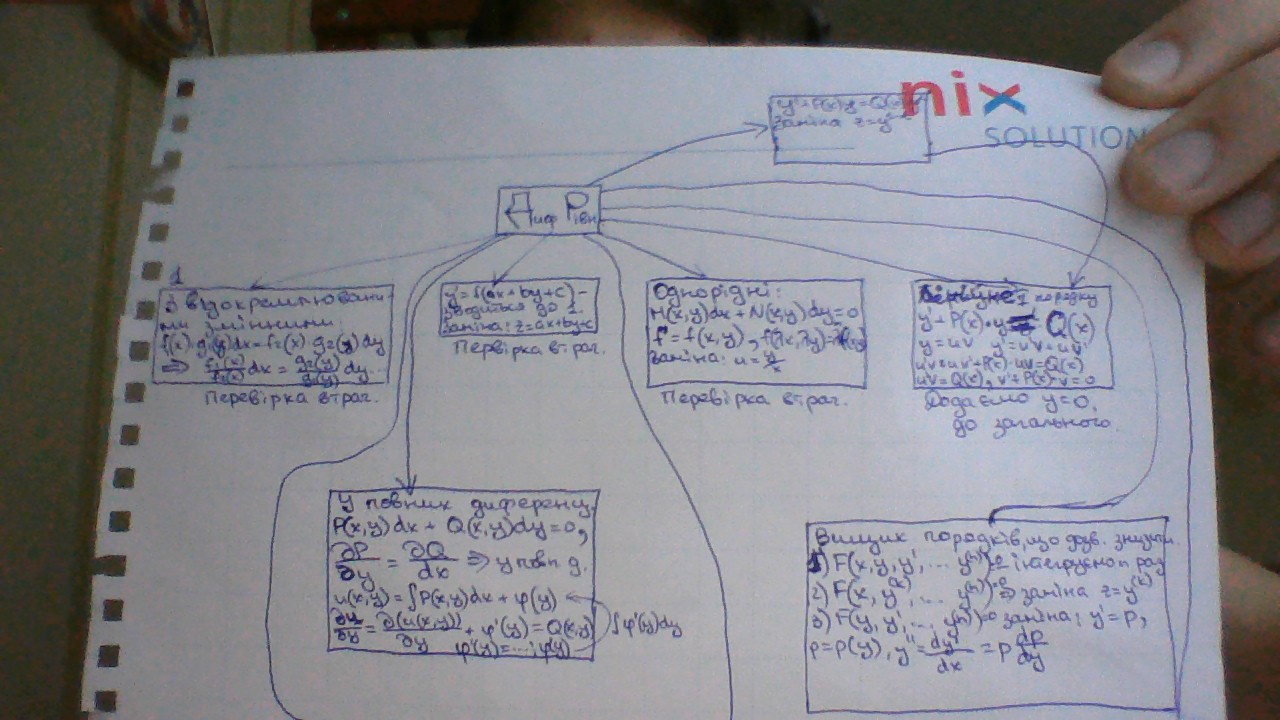 nix
SOLUTION
y'+P(x)y=Q(x)
Заміна z=y
Диф Рівн
1
З відокремлювани-
ми змінними.
f₁(x)·g₁(y)dx=f₂(x)·g₂(y)dy
⇒ f₁(x)/f₂(x) dx = g₂(y)/g₁(y) dy...
Перевірка втрат.
y'=f(ax+by+c)-
зводиться до 1.
Заміна: z=ax+by+c
Перевірка втрат.
Однорідні:
M(x,y)dx+N(x,y)dy=0
f'=f(x,y), f(λx,λy)=
Заміна: u=y/x
Перевірка втрат.
Лінійне 1 порядку
y'+P(x)·y= Q(x)
y=uv y'=u'v+uv'
u'v+uv'+P(x)·uv=Q(x)
u'v=Q(x), v'+P(x)·v=0
Додаємо y=0,
до загального.
У повних диференц.
P(x,y)dx+Q(x,y)dy=0,
∂P/∂y = ∂Q/dx ⇒ у повн. д.
u(x,y)=∫P(x,y)dx+φ(y)
∂u/∂y = ∂(u(x,y))/∂y + φ'(y)=Q(x,y)
∫φ'(y)dy
φ'(y)=...; φ(y)
Вищих порядків, що доп. знизити.
1) F(x,y,y',... y⁽ⁿ⁾)= інтегруємо n раз
2) F(x,y⁽ᵏ⁾,... y⁽ⁿ⁾)=0 ⇒ заміна z=y⁽ᵏ⁾
3) F(y,y',... y⁽ⁿ⁾)=0 заміна: y'=p,
p=p(y), y''= dy'/dx = p dp/dy